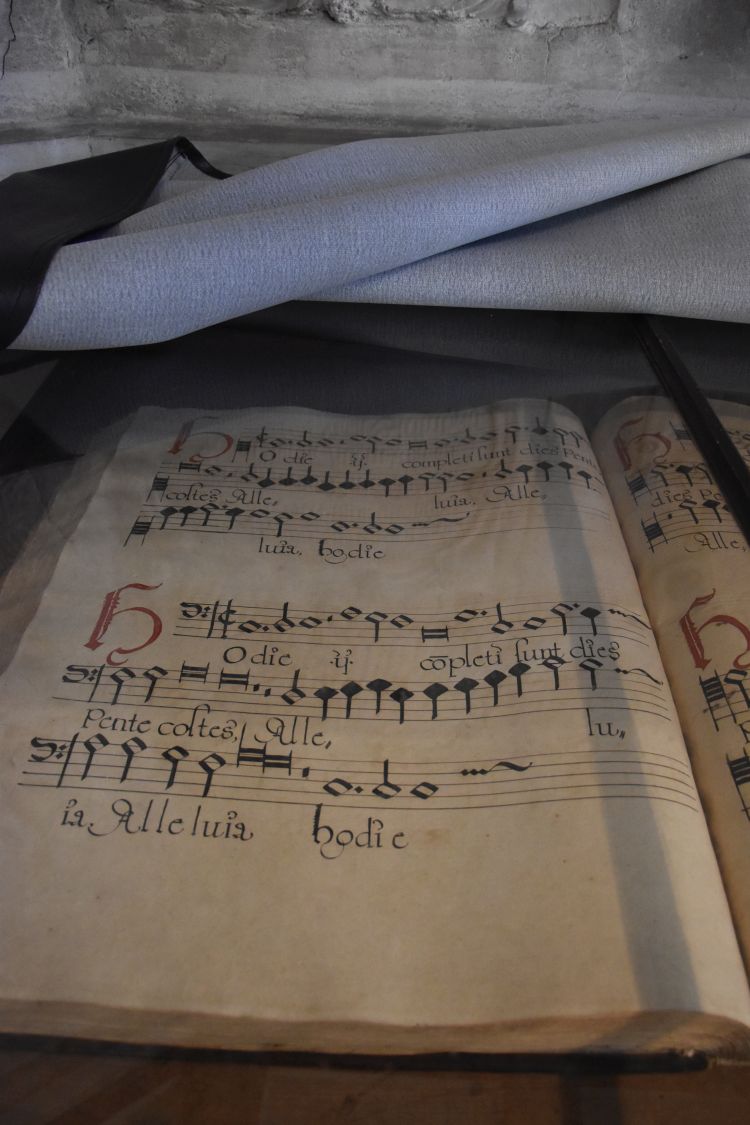 H O die ij. completi sunt dies Pente
costes Alle, luia. Alle,
luia. hodie
H O die ij. cōpleti sunt dies
Pente costes, Alle, lu,,
ia. Alleluia hodie
H
dies Pe
Alle,
H